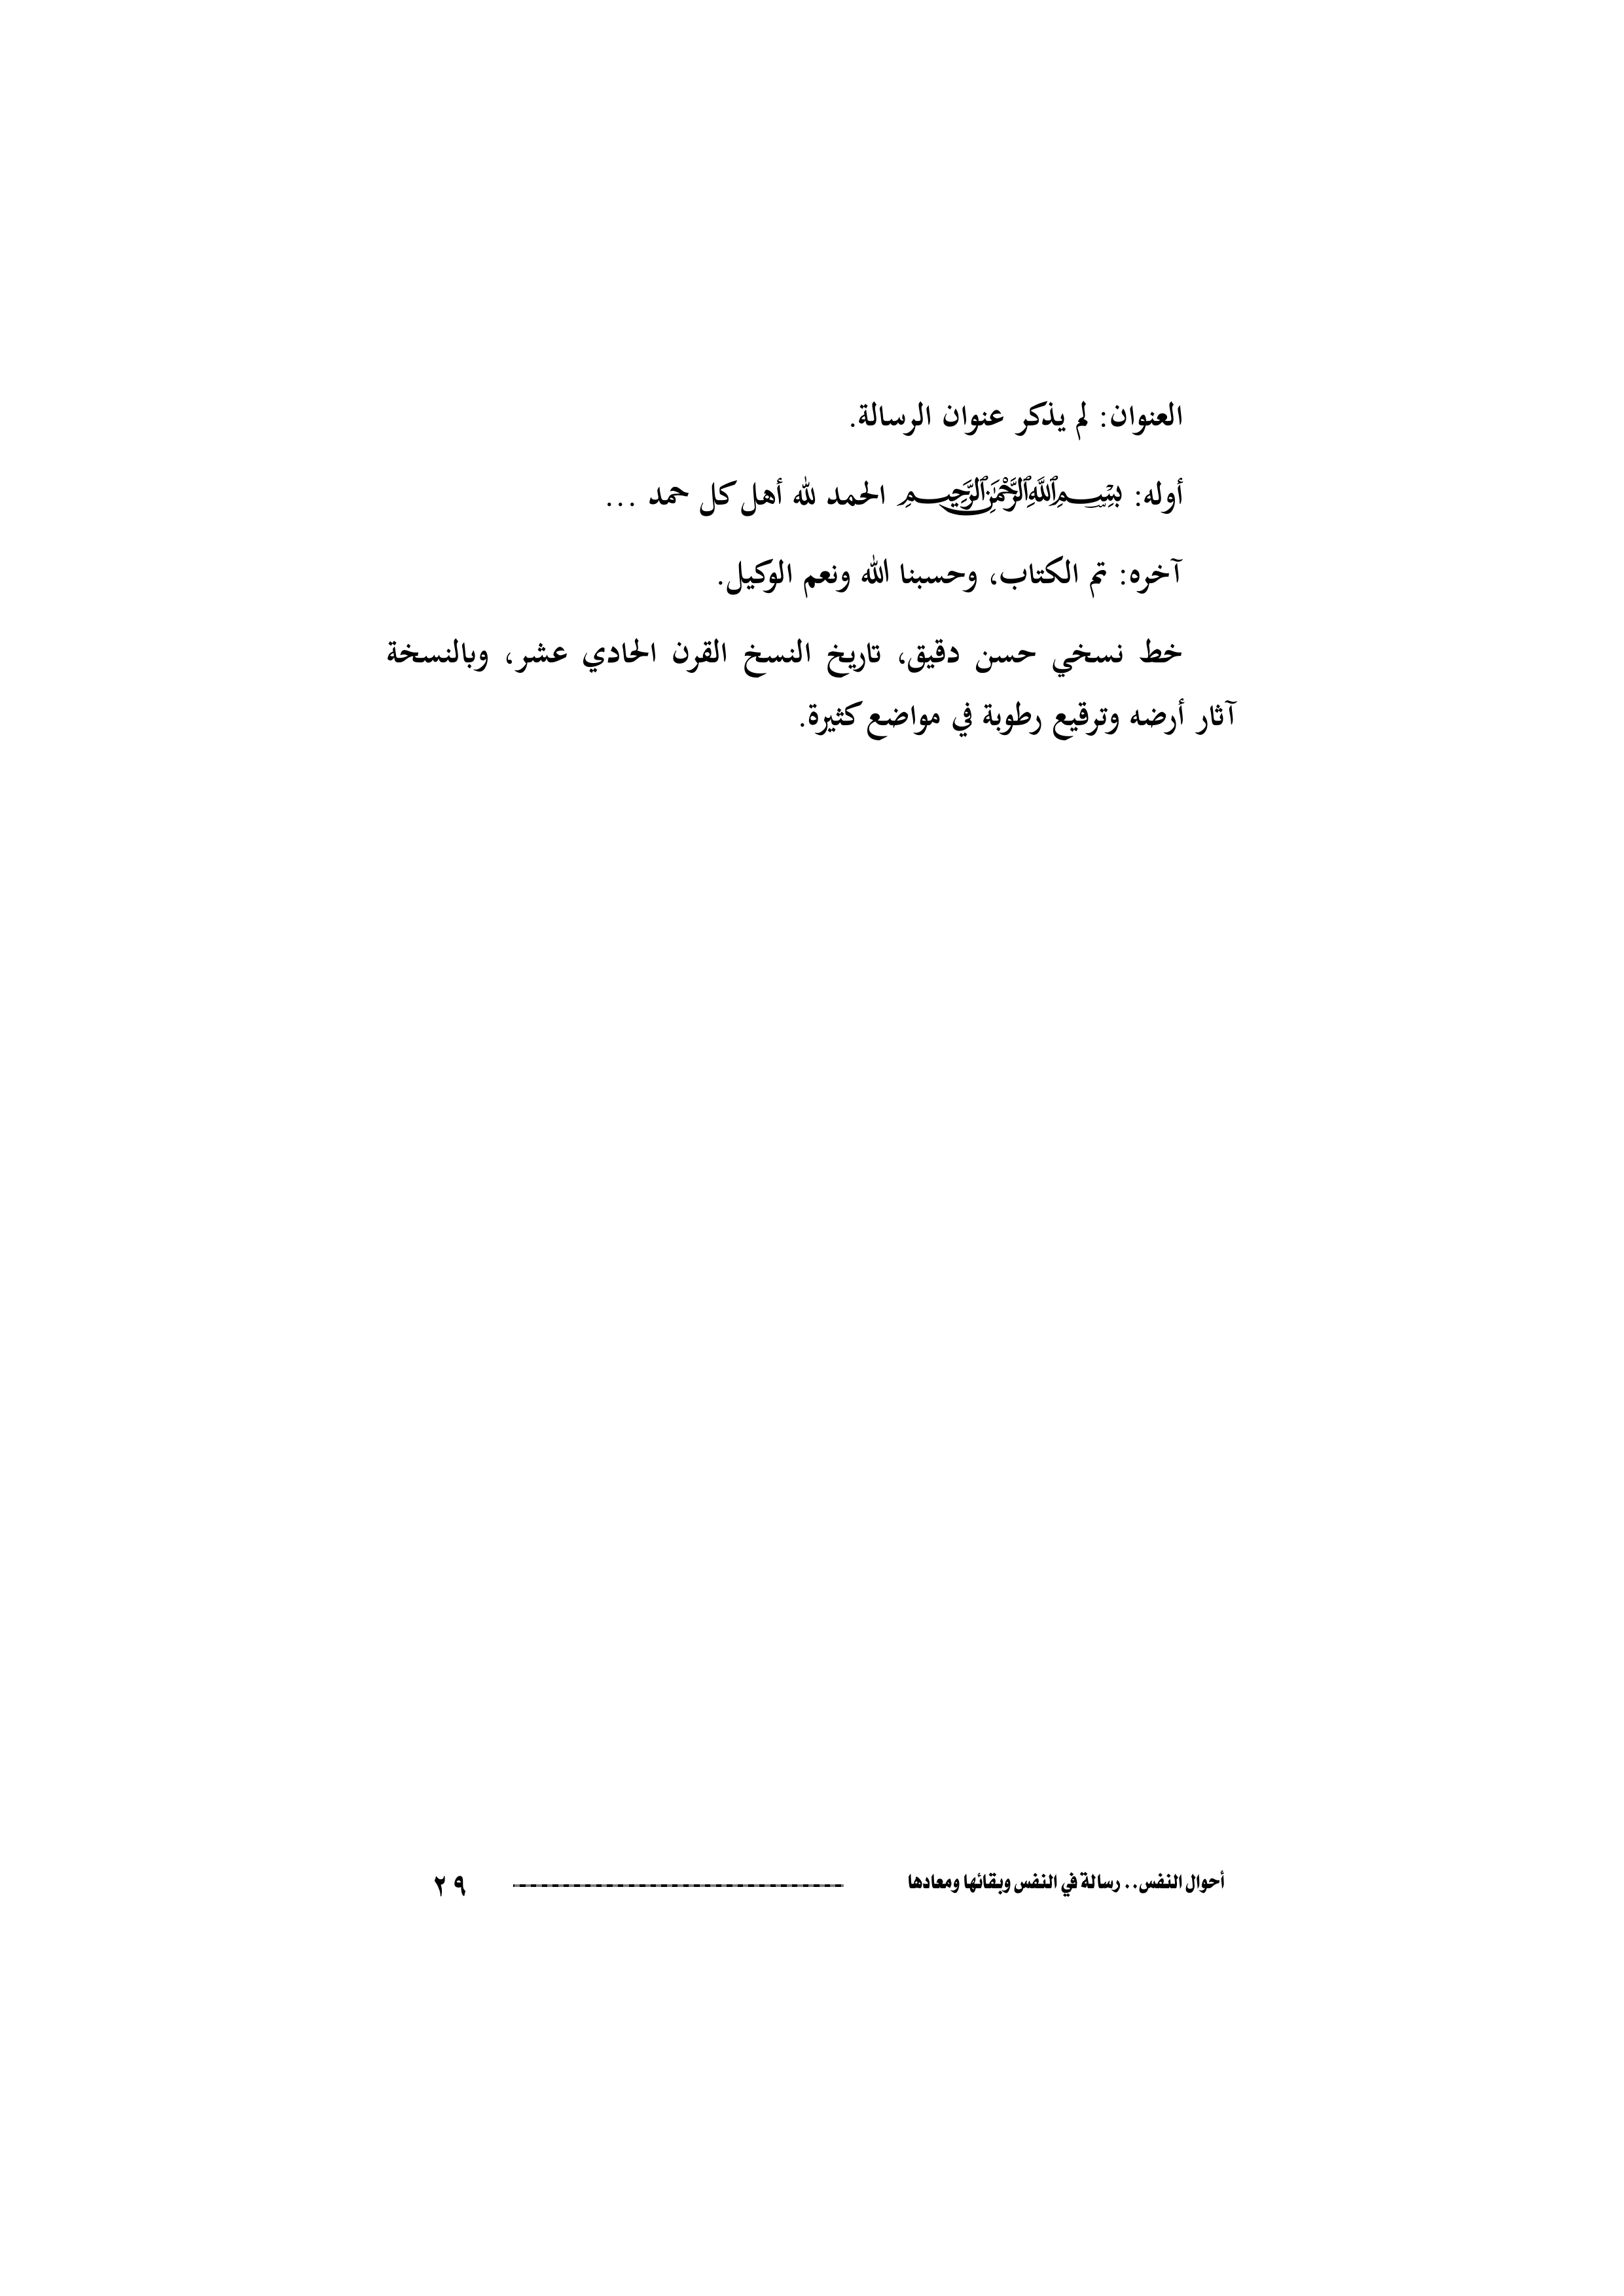 العنوان: لم يذكر عنوان الرسالة.
أوله: بسم الله الرحمن الرحيم الحمد لله أهل كل حمد ...
آخره: تم الكتاب، وحسبنا الله ونعم الوكيل.
خط نسخي حسن دقيق، تاريخ النسخ القرن الحادي عشر، وبالنسخة
آثار أرضه وترقيع رطوبة في مواضع كثيرة.
أحوال النفس.. رسالة في النفس وبقائها ومعادها ٢٩